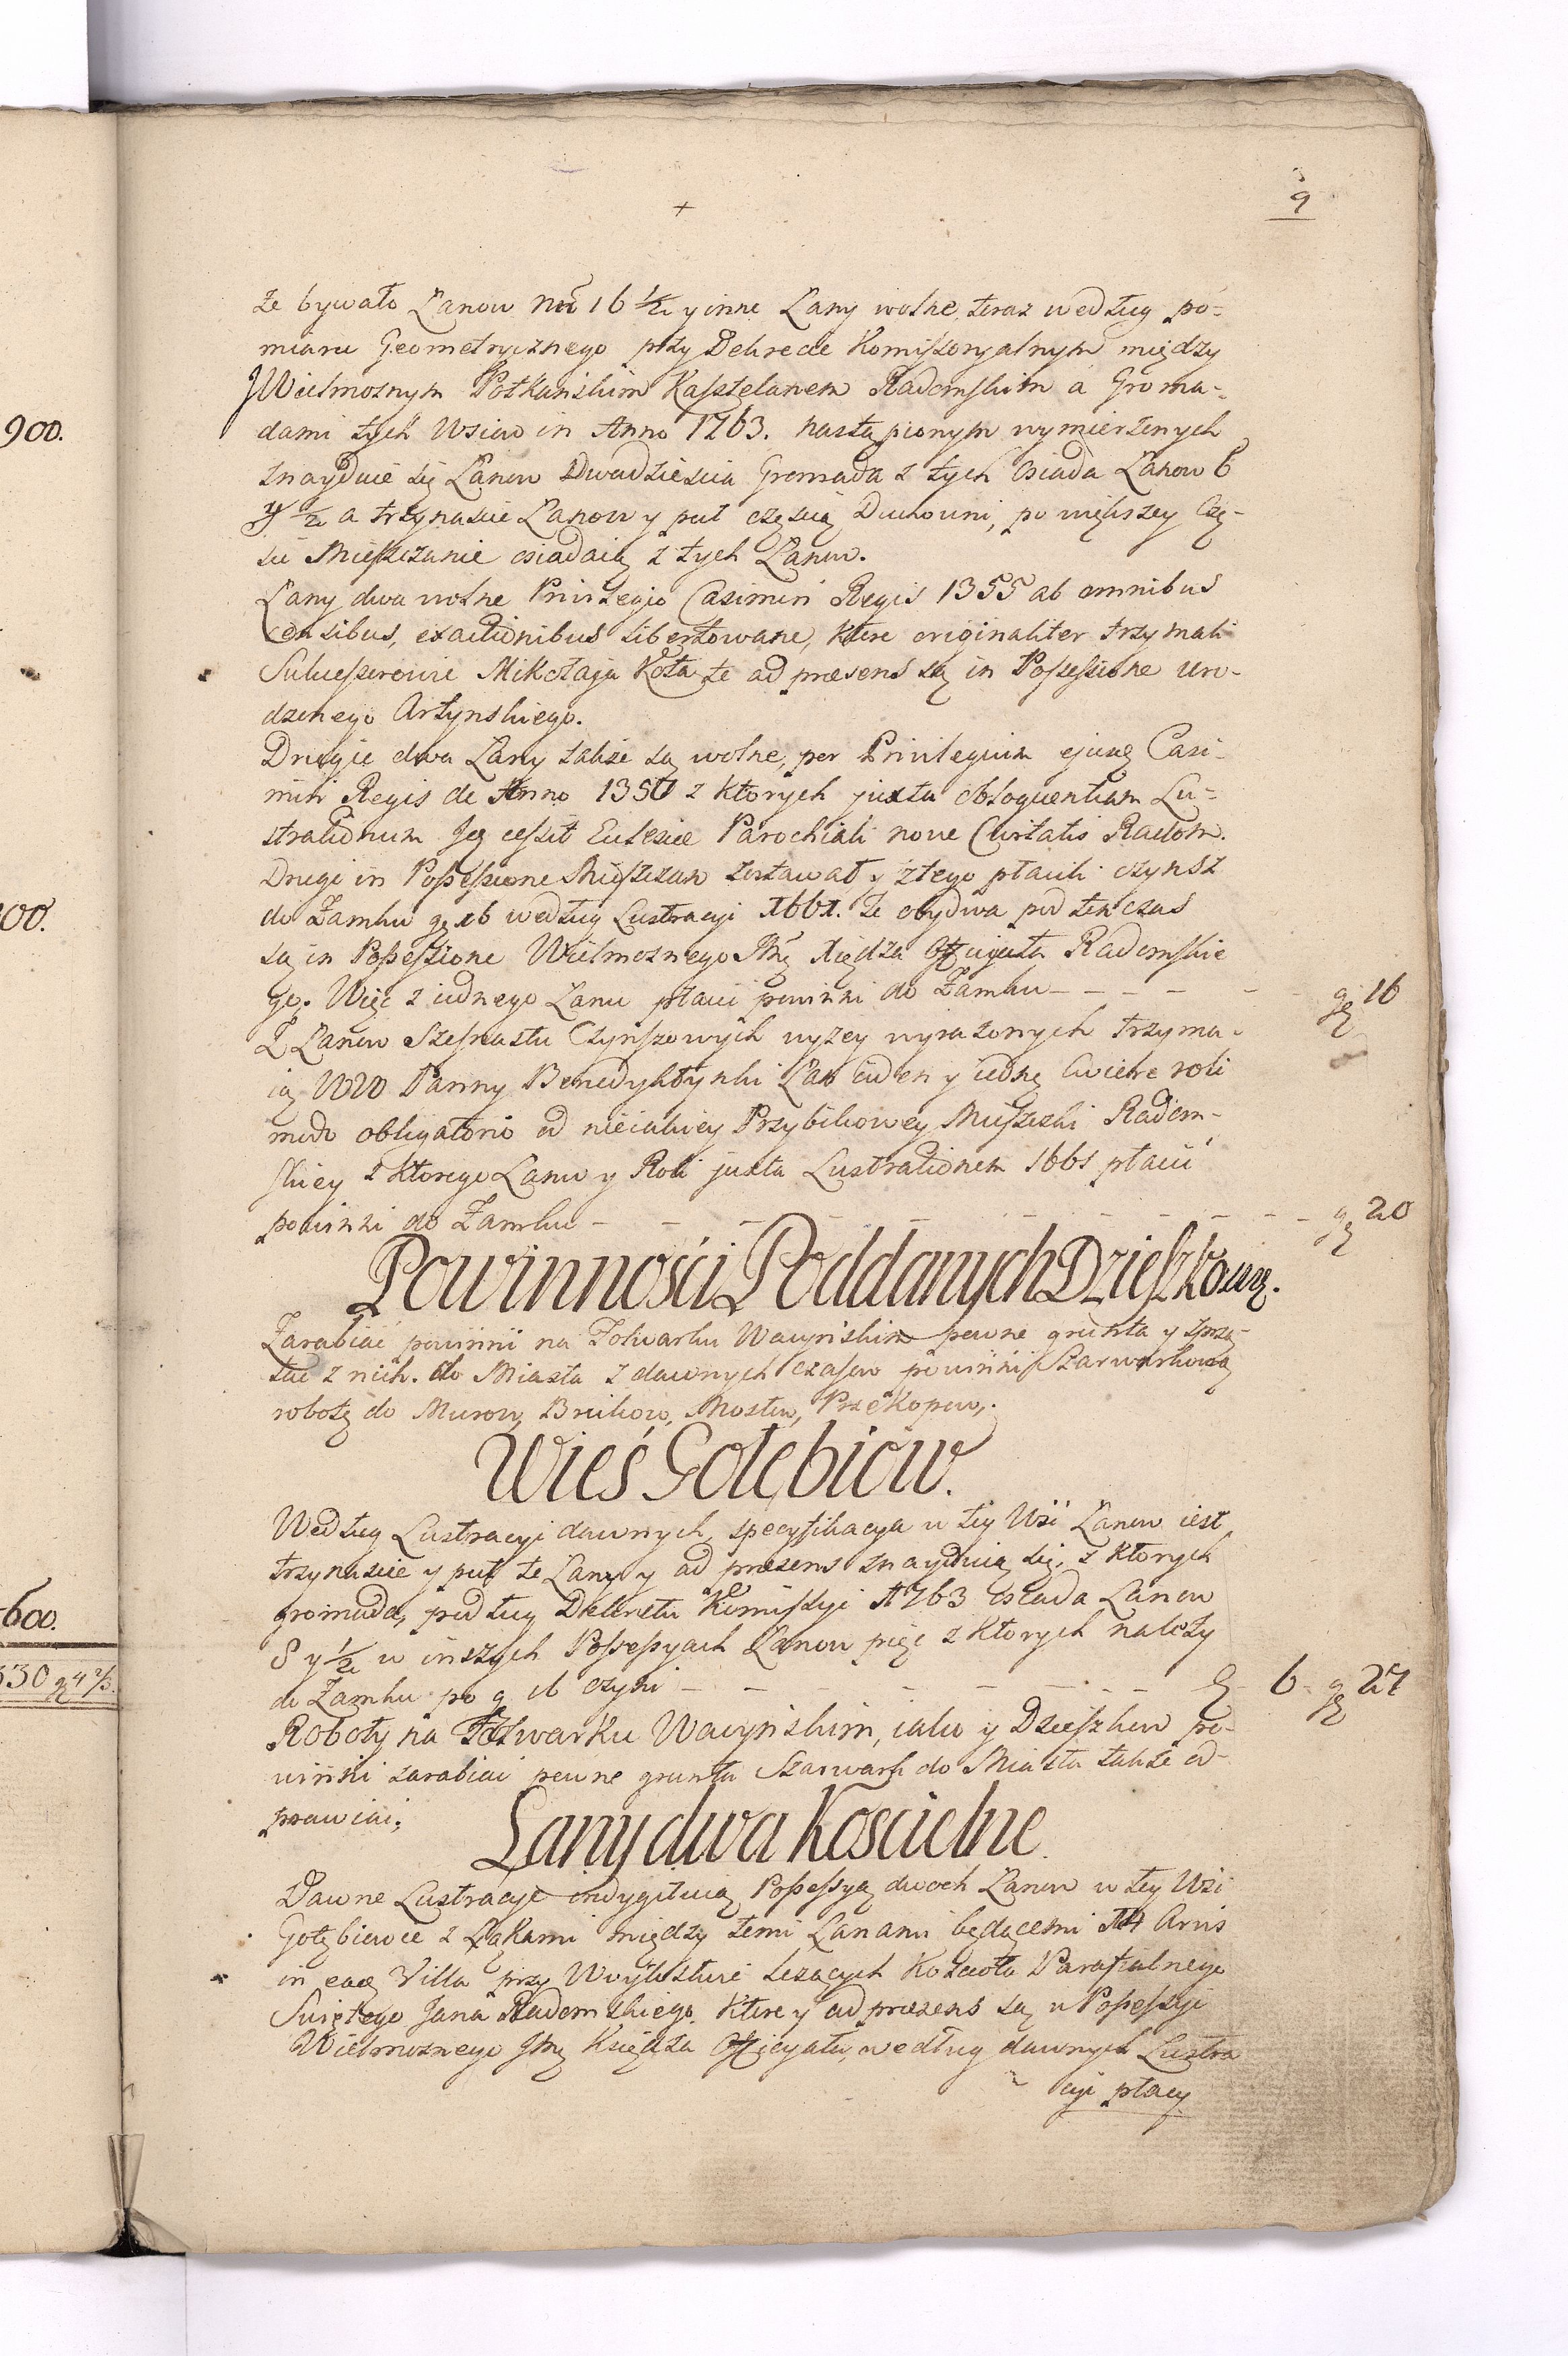 9
że bywało Łanow nro 16 ½ y inne Łany wolne, teraz według po-
miaru Geometrycznego przy Dekrecie Komißoryalnym między
JWielmoznym Potkańskim Kasztelanem Radomskim a Groma-
dami tych Wsiow in Anno 1763. nastąpionym wymierzonych
znayduie się Łanow Dwadziescia Gromada z tych Osiada Łanow 6
y ½ a trzynascie Łanow y puł częscią Duchowni, po większey Czę-
sci Mieszczanie osiadaią z tych Łanow.
Łany dwa wolne Privilegio Casimiri Regis 1355 ab omnibus
Censibus, exactionibus libertowane, ktore originaliter trzymali
Sukcessorowie Mikołaja Koła te ad præsens są in Possessione uro-
dzonego Artynskiego.
Drugie dwa Łany także są wolne, per Privilegium ejusq Casi-
miri Regis de Anno 1350 z ktorych juxta obloquentiam Lu-
strationum Jeg cessit Eclesiæ Parochiali novæ Civitatis Radom.
Drugi in Possessione Mieszczan zostawał y z tego płacili czynsz
do Zamku gr 16 według Lustracyi 1661. te obydwa pod ten czas
są in Possessione Wielmoznego Jmę Xiędza Officyała Radomskie
go. Więc z iednego Łanu płacić powinni do Zamku - - - - - gr 16
Z Łanow Szesnastu Czynszowych wyzey wyrazonych trzyma-
ią WW Panny Benedyktynki Łan ieden y iedną Cwierć roli
modo obligatorio od nieiakiey Przybikowey Mieszczki Radom-
skiey z ktorego Łanu y Roli juxta Lustrationem 1661 płacić
powinni do Zamku - - - - - - - gr 20
Powinności Poddanych Dzieszkową.
Zarabiać powinni na Folwarku Wacynskim pewne grunta y sprzą-
tać z nich. do Miasta z dawnych czasow powinni Szarwarkową
robotę do Murow, Brukow, Mostow, Przekopow,.
Wieś Gołębiów.
Według Lustracyi dawnych, specyfikacya w tey Wsi Łanow iest
trzynascie y puł te Łany y ad præsens znayduią się, z ktorych
gromada, podług Dekretu Komissyi 1763 Osiada Łanow
8 y ½ w inszych Possessyach Łanow pięć z ktorych należy
do Zamku po g 16 czyni - - - - - - - 6 - gr 27
Roboty na Folwarku Wacynskim, iako y Dzieszkow po-
winni zarabiać pewne grunta Szarwark do Miasta także od-
prawiai,
Łany dwa Koscielne.
Dawne Lustracye indygituią Possessyą dwoch Łanow w tey Wsi
Gołębiowie z Łąkami między temi Łanami będącemi Arvis
in eaq Villa przy Woytostwie lezących Koscioła Parafialnego
Swiętego Jana Radomskiego. Ktore y ad præsens są w Possessyi
Wielmoznego Jmę Księdza Officyała, według dawnych Lustra
cyi płacy
900.
00.
600.
330 gr 4 ⅔.